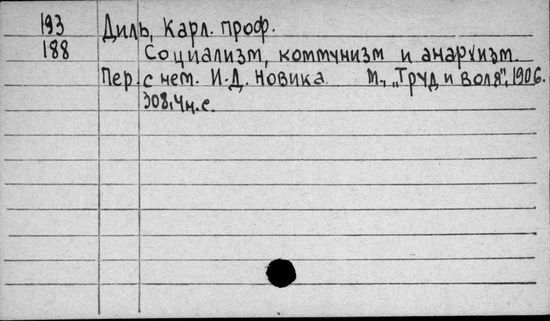 193 Диль, Карл. проф.
188 Социализм, коммунизм и анархизм.
Пер. с нем. И.Д. Новика М., „Труд и воля", 1906.
308, 4н.с.